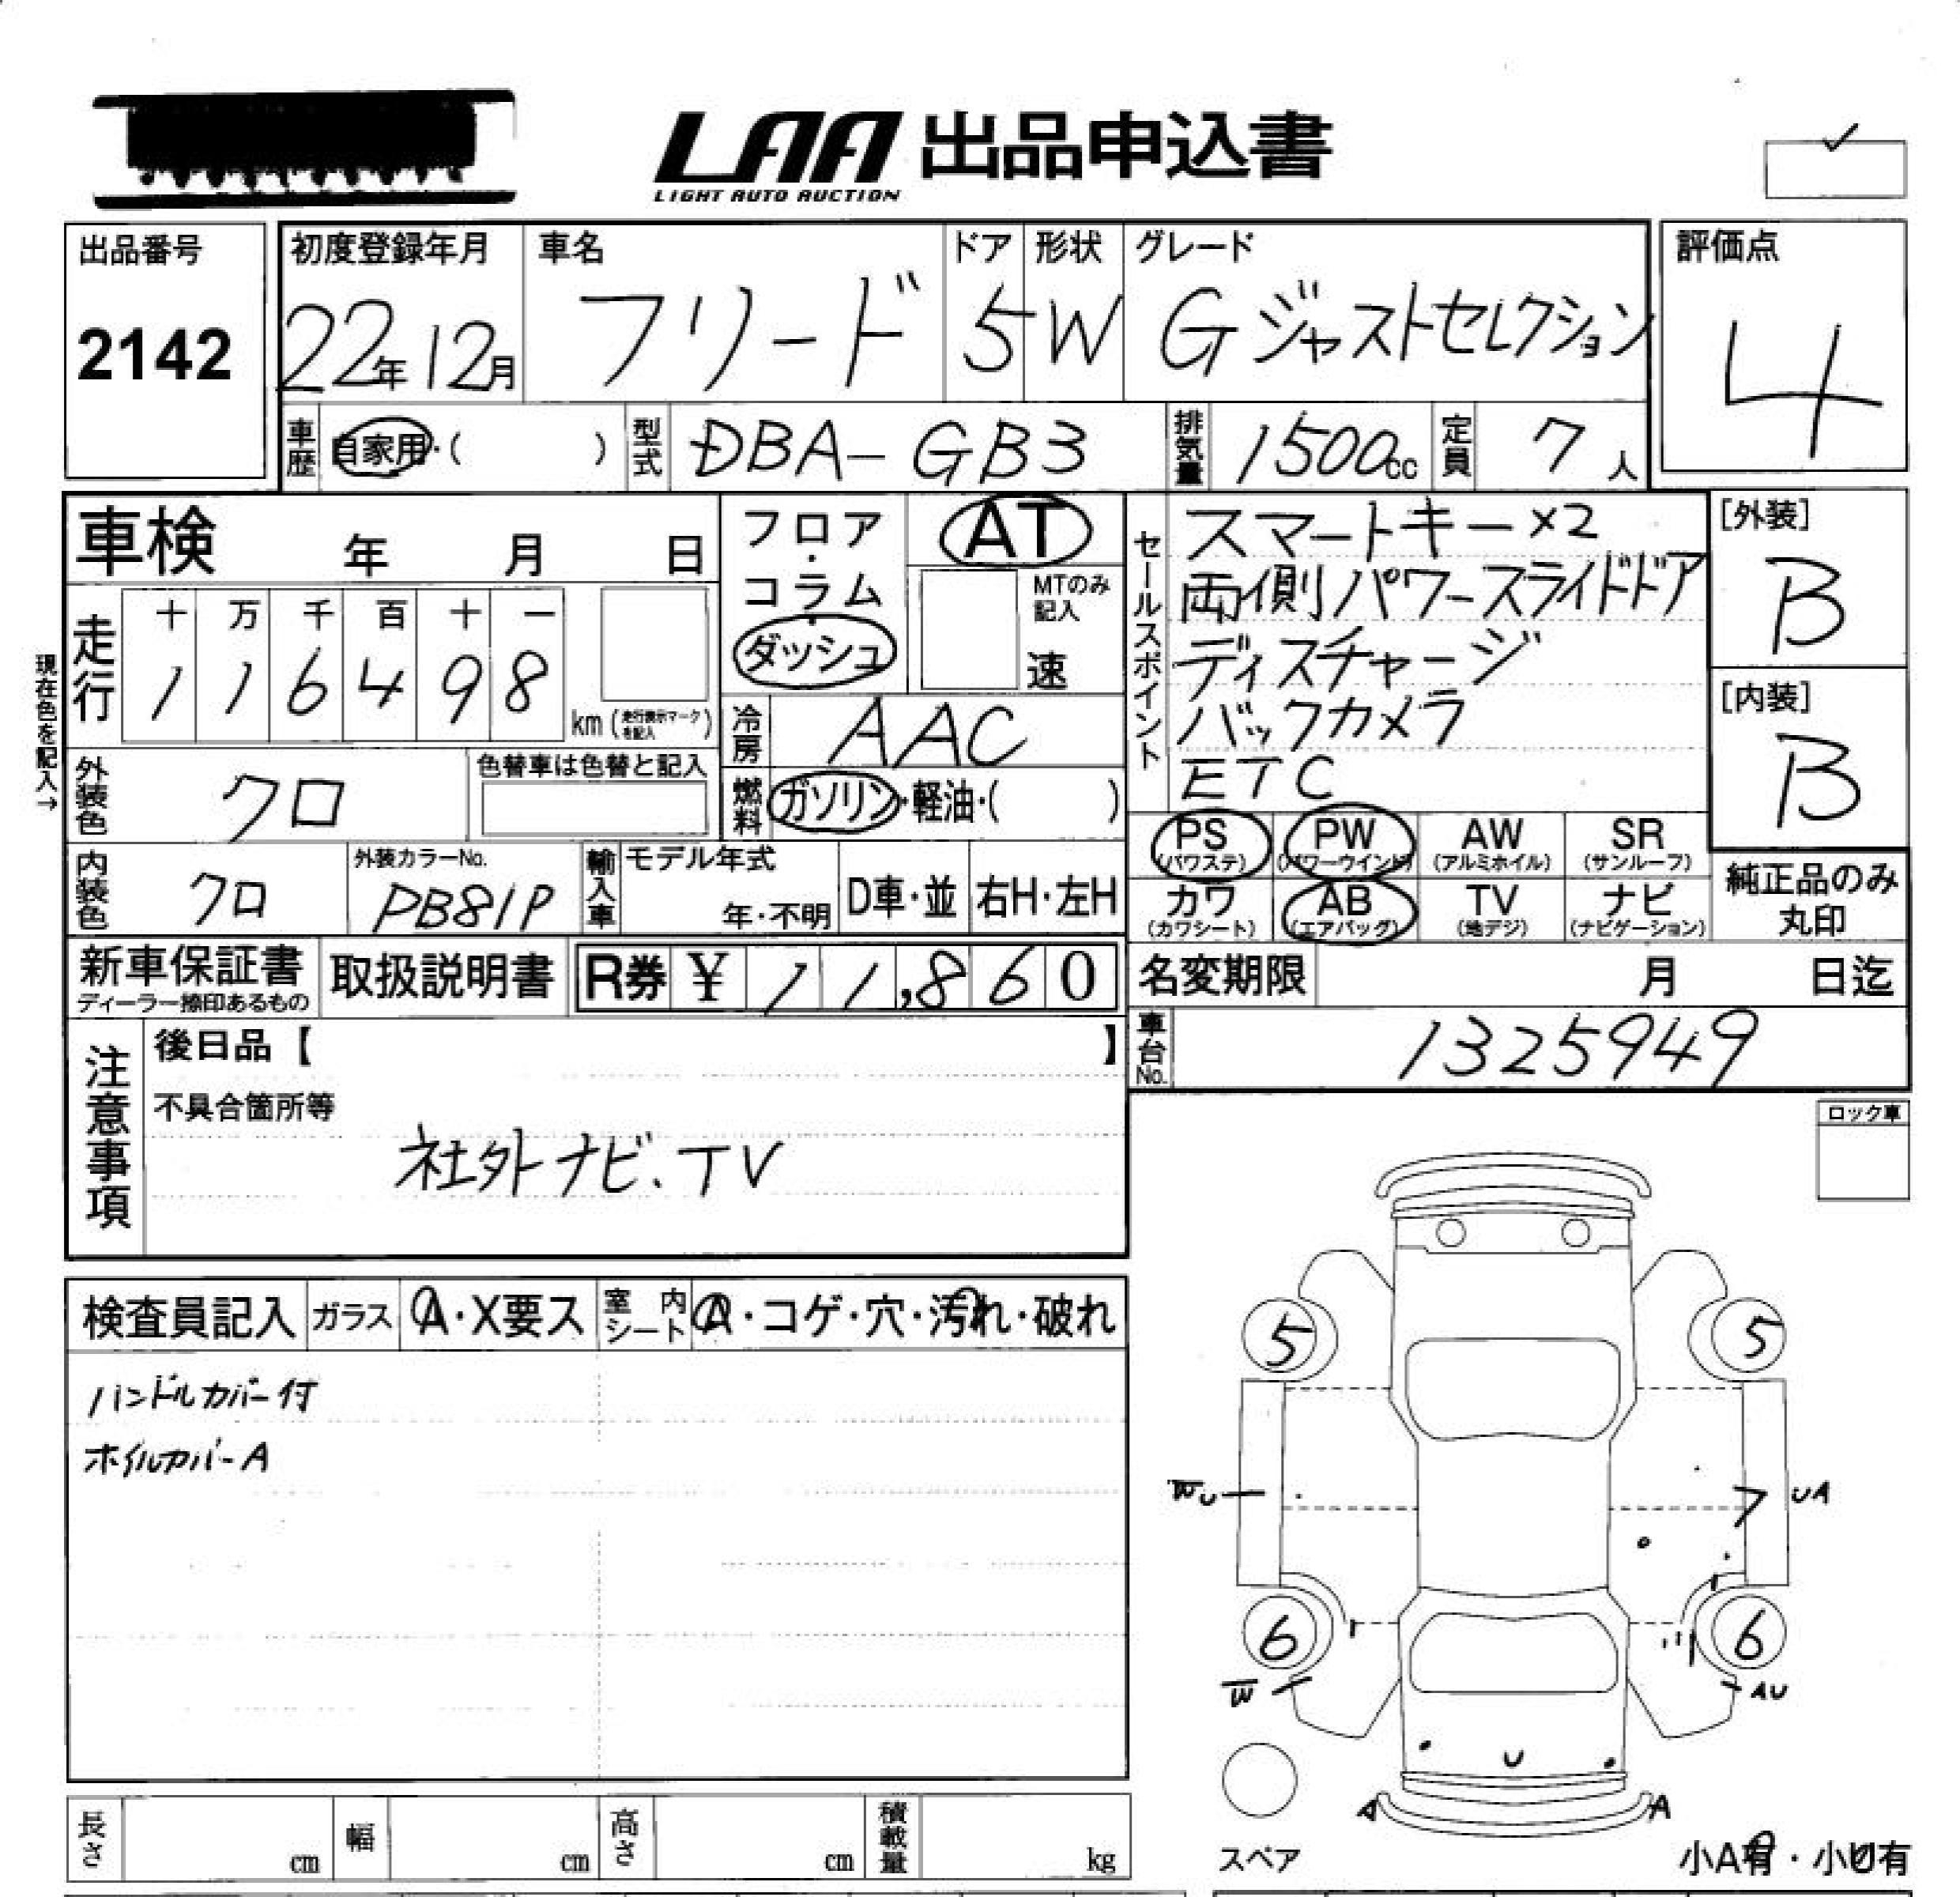 LAA 出品申込書
LIGHT AUTO AUCTION
出品番号
2142
初度登録年月
22年12月
車名
フリード
ドア
5
形状
W
グレード
Gジャストセレクション
評価点
4
車歴
自家用・( )
型式
DBA-GB3
排気量
1500cc
定員
7人
車検 年 月 日
フロア・コラム・ダッシュ
AT
MTのみ記入
速
セールスポイント
スマートキー×2
両側パワースライドドア
ディスチャージ
バックカメラ
ETC
[外装]
B
[内装]
B
現在色を記入→
走行
十 万 千 百 十 一
1 1 6 4 9 8
km (走行表示マークを記入)
冷房
AAC
外装色
クロ
色替車は色替と記入
燃料
ガソリン・軽油・( )
内装色
クロ
外装カラーNo.
PB81P
輸入車
モデル年式
年・不明
D車・並
右H・左H
PS (パワステ)
PW (パワーウインド)
AW (アルミホイル)
SR (サンルーフ)
カワ (カワシート)
AB (エアバッグ)
TV (地デジ)
ナビ (ナビゲーション)
純正品のみ丸印
新車保証書
ディーラー捺印あるもの
取扱説明書
R券 ¥ 11,860
名変期限 月 日迄
車台No.
1325949
注意事項
後日品【 】
不具合箇所等
社外ナビ、TV
ロック車
検査員記入
ガラス
A・X要ス
室内シート
A・コゲ・穴・汚れ・破れ
ハンドルカバー付
ホイルカバーA
5 5
WU UA
6 6
W AU
U
A A
スペア
小A有・小U有
長さ cm
幅 cm
高さ cm
積載量 kg